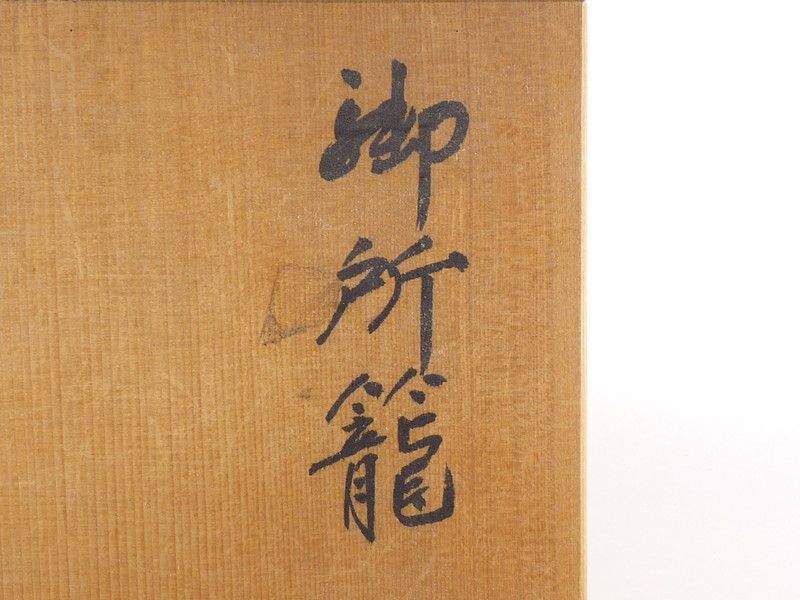 御所籠